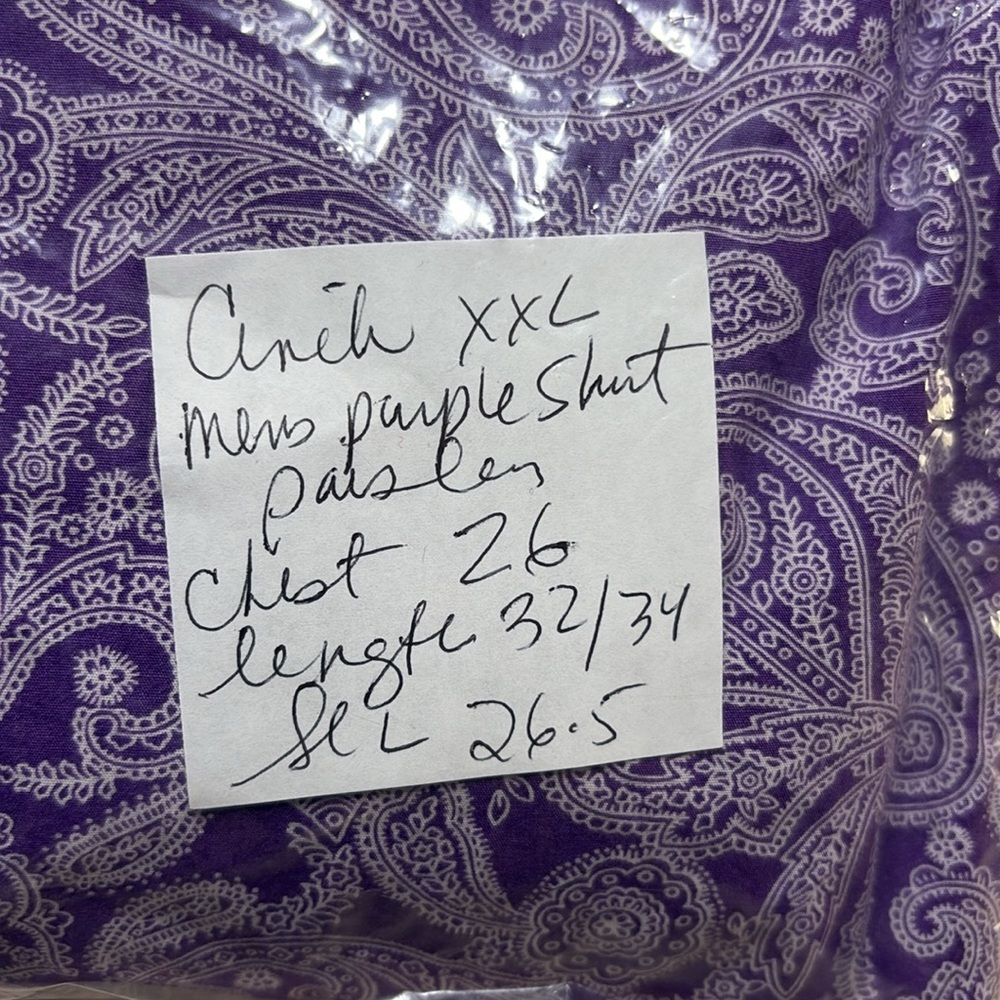 Cinch XXL
mens purple shirt
paisley
chest 26
length 32/34
SLL 26.5